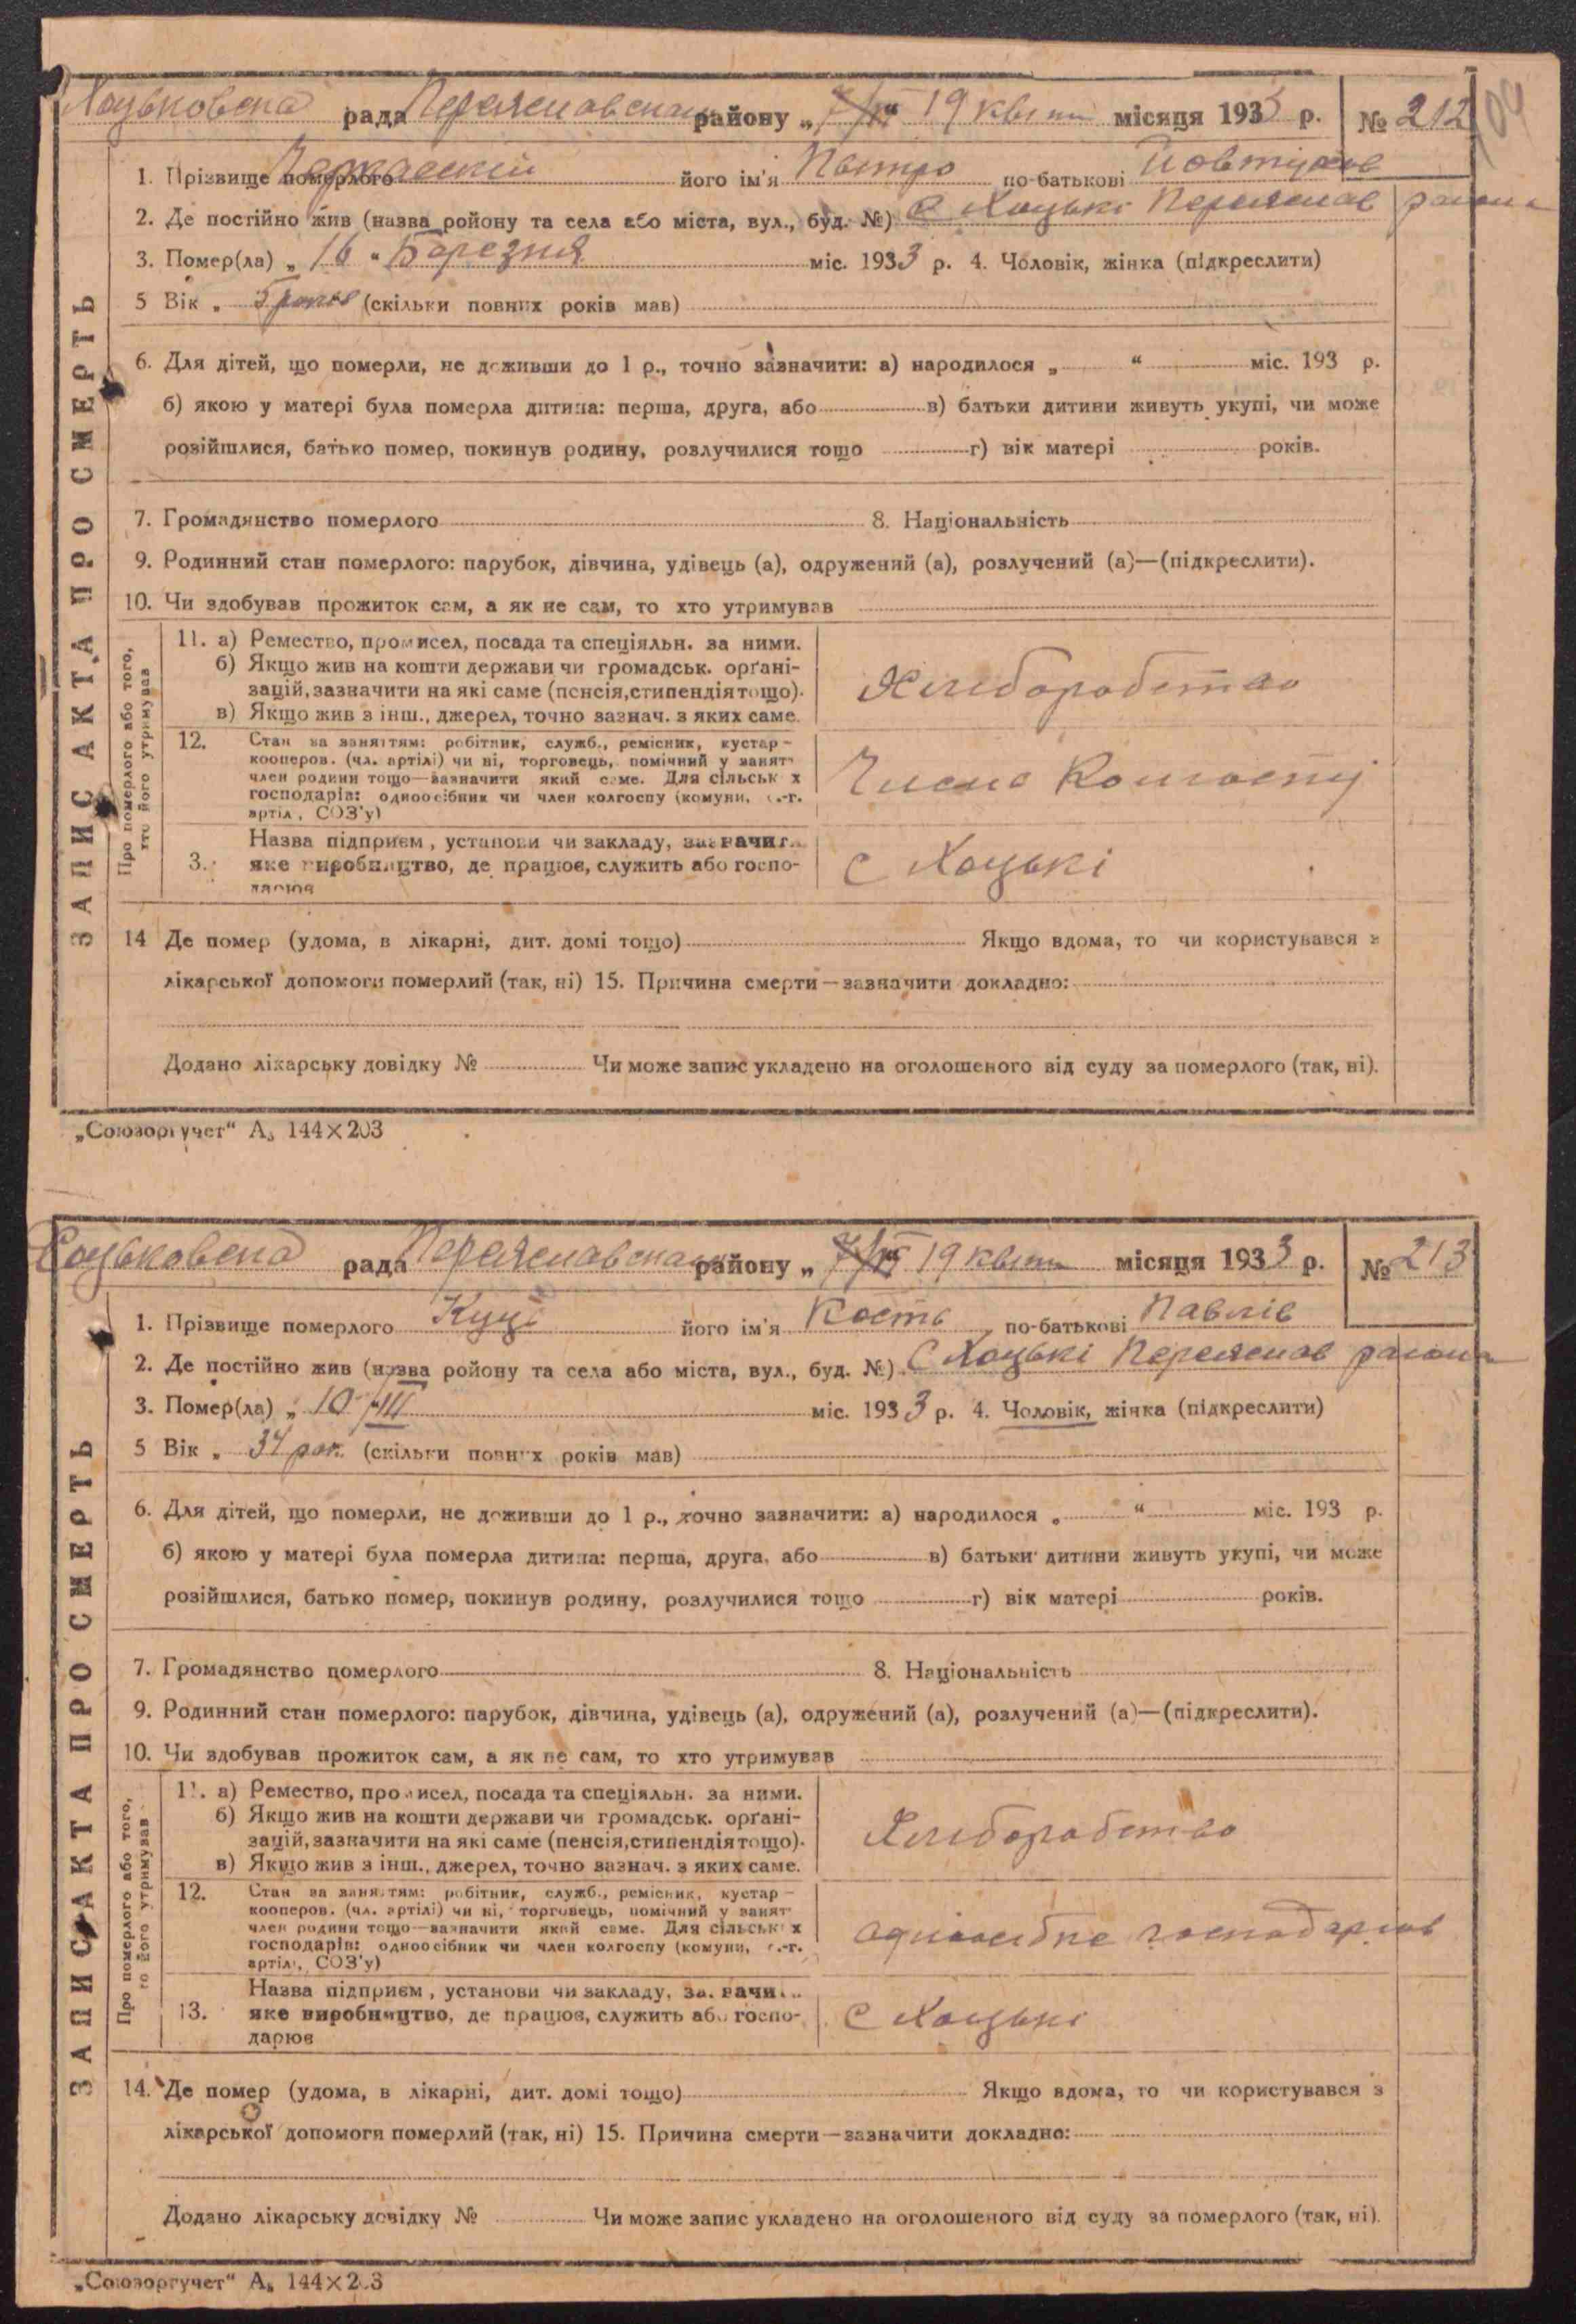 Хоцьковська рада Переяславська району „ 19 квітн місяця 1933 р. № 212
109
1. Прізвище померлого Черкаський його ім'я Петро по-батькові Йовтухов
2. Де постійно жив (назва ройону та села або міста, вул., буд. №) с Хоцькі Переяслав района
3. Помер(ла) „ 16 “ Березня міс. 1933 р. 4. Чоловік, жінка (підкреслити)
5 Вік „ 5 роков (скільки повних років мав)
6. Для дітей, що померли, не доживши до 1 р., точно зазначити: а) народилося „ “ міс. 193 р.
б) якою у матері була померла дитина: перша, друга, або в) батьки дитини живуть укупі, чи може
розійшлися, батько помер, покинув родину, розлучилися тощо г) вік матері років.
7. Громадянство померлого 8. Національність
9. Родинний стан померлого: парубок, дівчина, удівець (а), одружений (а), розлучений (а)—(підкреслити).
10. Чи здобував прожиток сам, а як не сам, то хто утримував
ЗАПИС АКТА ПРО СМЕРТЬ
Про померлого або того, хто його утримував
11. а) Ремество, промисел, посада та спеціяльн. за ними.
б) Якщо жив на кошти держави чи громадськ. орґані-
зацій, зазначити на які саме (пенсія, стипендія тощо).
в) Якщо жив з інш., джерел, точно зазнач. з яких саме.
Хлеборобство
12. Стан за заняттям: робітник, служб., ремісник, кустар—
кооперов. (чл. артілі) чи ні, торговець, помічний у занят
член родини тощо—зазначити який саме. Для сільськ х
господарів: одноосібник чи член колгоспу (комуни, с.-г.
артіл , СОЗ'у)
Члена Колгоспу
3. Назва підприєм , установи чи закладу, зазначит
яке виробництво, де працює, служить або госпо-
дарює
с Хоцькі
14 Де помер (удома, в лікарні, дит. домі тощо) Якщо вдома, то чи користувався з
лікарської допомоги померлий (так, ні) 15. Причина смерти—зазначити докладно:
Додано лікарську довідку № Чи може запис укладено на оголошеного від суду за померлого (так, ні).
„Союзоргучет“ А₅ 144×203
Хоцьковська рада Переяславська району „ 19 квітн місяця 1933 р. № 213
1. Прізвище померлого Куць його ім'я Кость по-батькові Павлів
2. Де постійно жив (назва ройону та села або міста, вул., буд. №) с Хоцькі Переяслав района
3. Помер(ла) „ 10/III міс. 1933 р. 4. Чоловік, жінка (підкреслити)
5 Вік „ 34 рок. (скільки повних років мав)
6. Для дітей, що померли, не доживши до 1 р., точно зазначити: а) народилося „ “ міс. 193 р.
б) якою у матері була померла дитина: перша, друга, або в) батьки дитини живуть укупі, чи може
розійшлися, батько помер, покинув родину, розлучилися тощо г) вік матері років.
7. Громадянство померлого 8. Національність
9. Родинний стан померлого: парубок, дівчина, удівець (а), одружений (а), розлучений (а)—(підкреслити).
10. Чи здобував прожиток сам, а як не сам, то хто утримував
ЗАПИС АКТА ПРО СМЕРТЬ
Про померлого або того, го його утримував
11. а) Ремество, промисел, посада та спеціяльн. за ними.
б) Якщо жив на кошти держави чи громадськ. орґані-
зацій, зазначити на які саме (пенсія, стипендія тощо).
в) Якщо жив з інш., джерел, точно зазнач. з яких саме.
Хлеборобство
12. Стан за заняттям: робітник, служб., ремісник, кустар—
кооперов. (чл. артілі) чи ні, торговець, помічний у занят
член родини тощо—зазначити який саме. Для сільськ х
господарів: одноосібник чи член колгоспу (комуни, с.-г.
артілі, СОЗ'у)
одноосібне господарсов
13. Назва підприєм , установи чи закладу, зазначи
яке виробництво, де працює, служить або госпо-
дарює
с Хоцькі
14. Де помер (удома, в лікарні, дит. домі тощо) Якщо вдома, то чи користувався з
лікарської допомоги померлий (так, ні) 15. Причина смерти—зазначити докладно:
Додано лікарську довідку № Чи може запис укладено на оголошеного від суду за померлого (так, ні).
„Союзоргучет“ А₅ 144×203